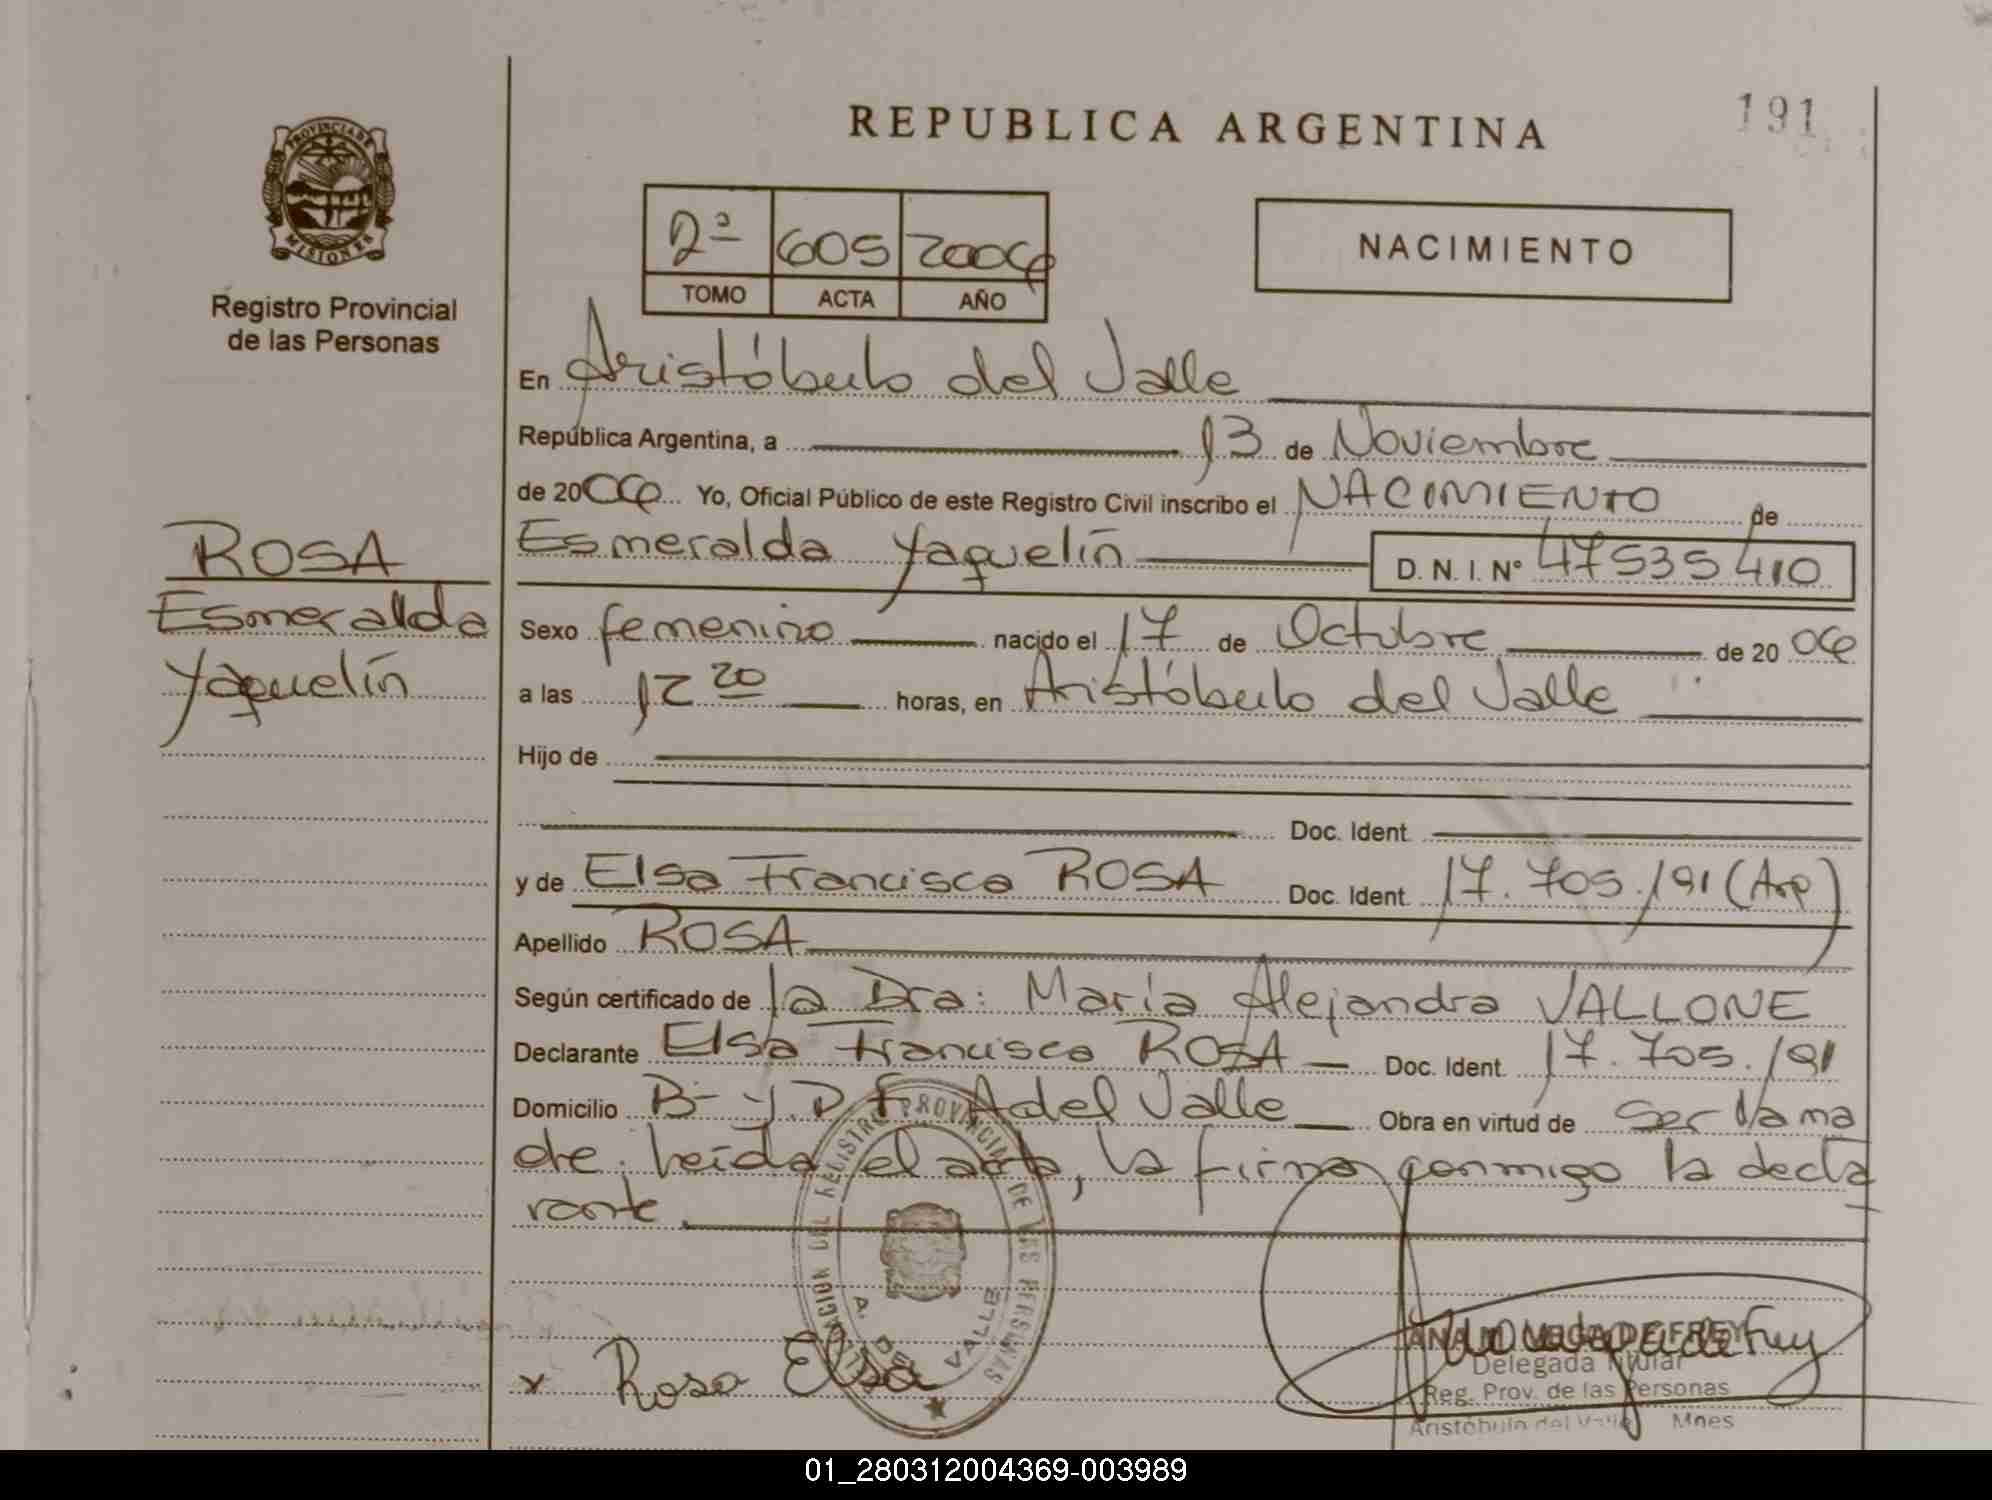 191
REPUBLICA ARGENTINA
PROVINCIA DE MISIONES
Registro Provincial
de las Personas
2ª 605 2006
TOMO ACTA AÑO
NACIMIENTO
En Aristóbulo del Valle
República Argentina, a 13 de Noviembre
de 2006 Yo, Oficial Público de este Registro Civil inscribo el NACIMIENTO de
Esmeralda Yaquelín D. N. I. Nº 47535410
ROSA
Esmeralda
Yaquelín
Sexo femenino nacido el 17 de Octubre de 2006
a las 12 20 horas, en Aristóbulo del Valle
Hijo de
Doc. Ident.
y de Elsa Francisca ROSA Doc. Ident. 17.705.191 (Arg)
Apellido ROSA
Según certificado de la Dra: María Alejandra VALLONE
Declarante Elsa Francisca ROSA Doc. Ident. 17.705.191
Domicilio A del Valle Obra en virtud de Ser la ma
dre. Leída el acta, la firma conmigo la decla
rante
DELEGACION DEL REGISTRO PROVINCIAL DE LAS PERSONAS
A. DEL VALLE
x Rosa Elsa
ANA M. VEGA DE FREY
Delegada Titular
Reg. Prov. de las Personas
Aristóbulo del Valle Mnes
01_280312004369-003989